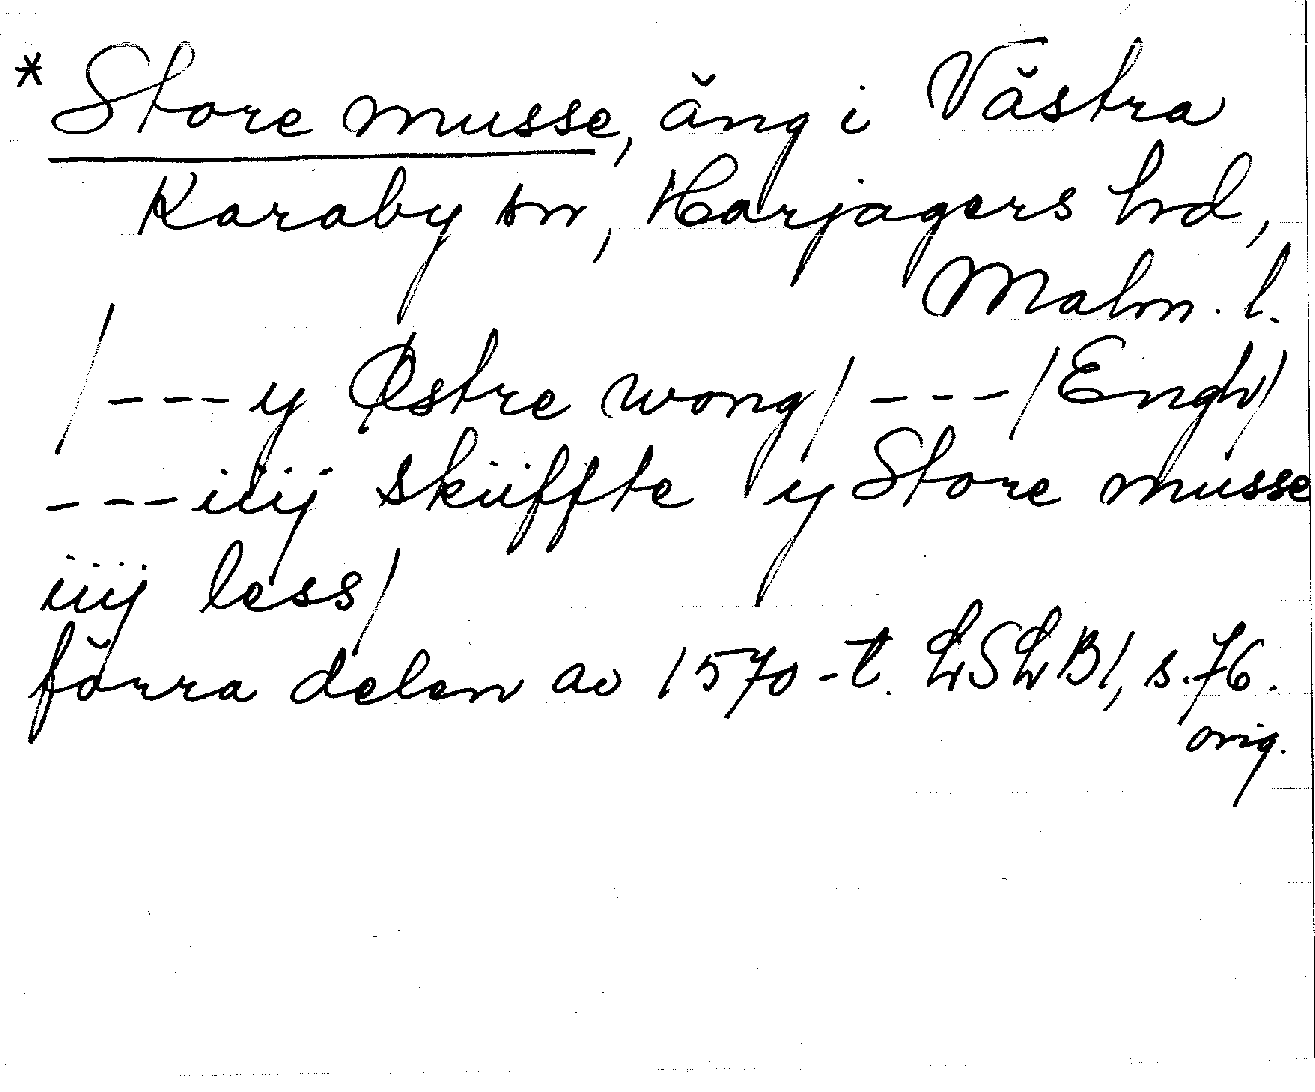 * Store musse, äng i Västra
Karaby sn, Harjagers hd,
Malm. l.
/---y Østre wong/ ---/Engh/
---iiij skiiffte y Store musse
iiij less/
förra delen av 1570-t. LSLB1, s. 76.
orig.